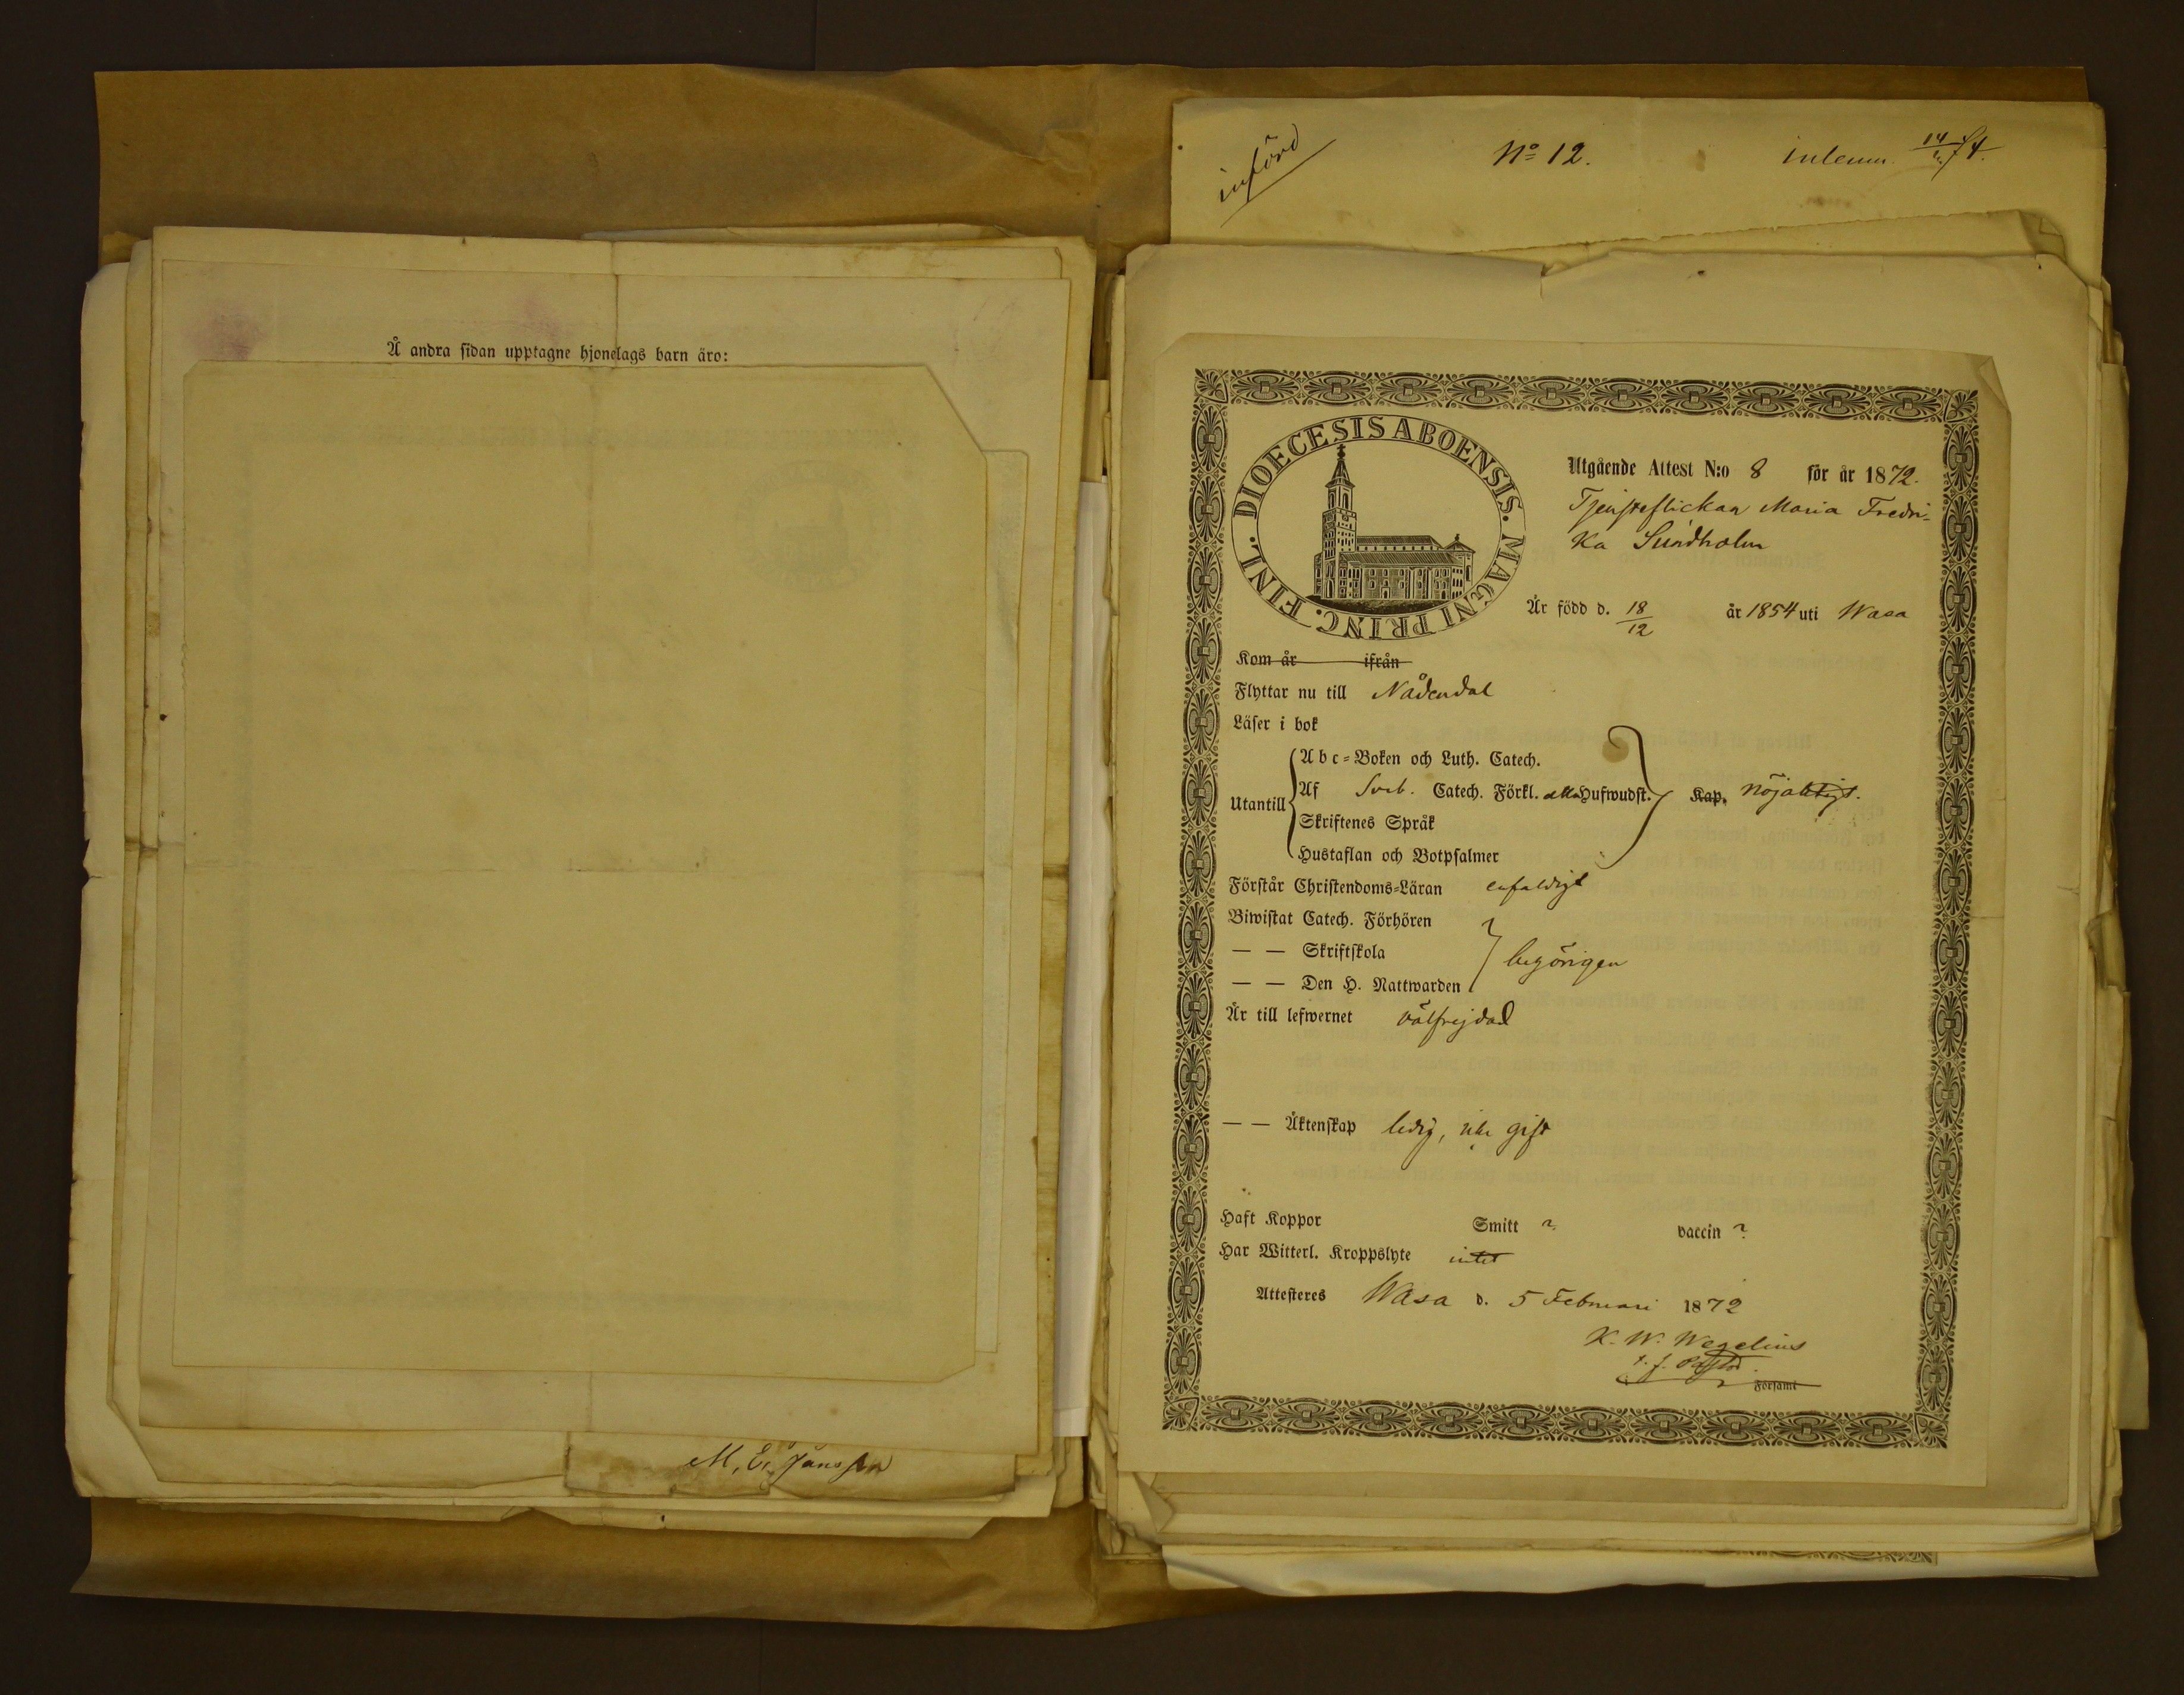 Å andra sidan upptagne hjonelags barn äro:
M. E. Jansson
införd
No 12.
inlemn. 74.
DIOECESIS ABOENSIS. MAGNI PRINC. FINL.
Utgående Attest N:o 8 för år 1872.
Tjensteflickan Maria Fredri-
ka Sundholm
Är född d. 18/12 år 1854 uti Wasa
Kom år ifrån
Flyttar nu till Nådendal
Läser i bok
Utantill
Abc-Boken och Luth. Catech.
Af Sveb. Catech. Förkl. alla Hufwudst. Kap. nöjaktigt.
Skriftenes Språk
Hustaflan och Botpsalmer
Förstår Christendoms-Läran enfaldigt
Biwistat Catech. Förhören
— — Skriftskola behörigen
— — Den H. Nattwarden
Är till lefwernet välfrejdad
— — Äktenskap ledig, icke gift
Haft Koppor Smitt ? vaccin ?
Har Witterl. Kroppslyte intet
Attesteres Wasa d. 5 Februari 1872
K. W. Wegelius
t. f. Pastor.
Församl